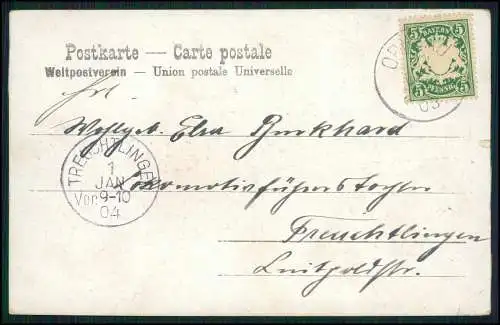 Postkarte — Carte postale
Weltpostverein — Union postale Universelle
BAYERN
5 5
5 PFENNIG 5
03
Frl.
Wohlgeb. Elsa Burkhard
Lokomotivführers Tochter
Treuchtlingen
Luitpoldstr.
TREUCHTLINGEN
1
JAN
Vor.9-10
04